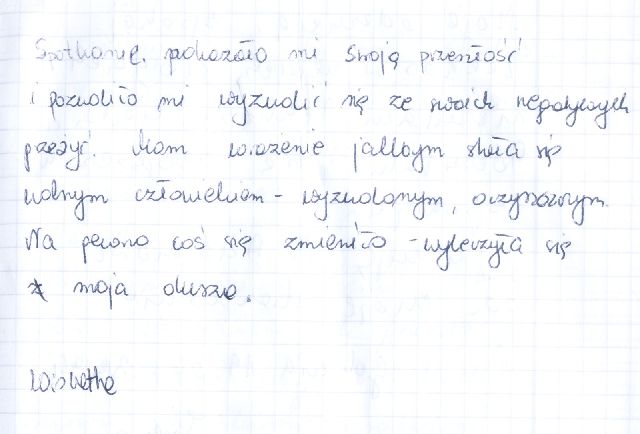 Spotkanie pokazało mi swoją przeszłość
i pozwoliło mi wyzwolić się ze swoich negatywnych
przeżyć. Mam wrażenie jakbym stała się
wolnym człowiekiem - wyzwolonym, oczyszczonym.
Na pewno coś się zmieniło - wyleczyła się
moja dusza.